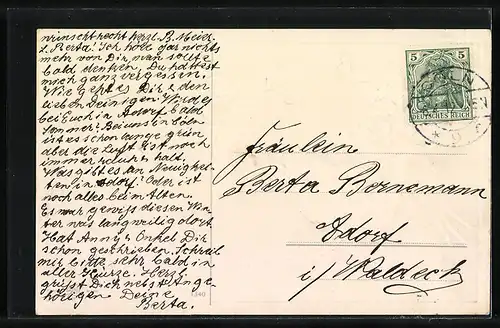 wünscht recht herzl. B. Meier.
L. Berta! Ich höre gar nichts
mehr von Dir, man sollte
bald denken, Du hättest
mich ganz vergessen.
Wie geht es Dir & den
lieben Deinigen. Wird es
bei Euch in Adorf bald
Sommer! Bei uns in Cöln
ist es schon lange grün
aber die Luft ist noch
immer kalt.
Was gibt es an Neuigkei-
ten in Adorf! Oder ist
noch alles beim Alten.
Es war gewiss diesen Win-
ter was langweilig dort.
Hat Anny & Onkel Dir
schon geschrieben. Schreib
mir bitte sehr bald in
aller Kürze. Herzl.
grüsst Dich nebst Ange-
hörigen Deine
Berta.
5 5
DEUTSCHES REICH
CÖLN
Fräulein
Berta Bornemann
Adorf
i/Waldeck